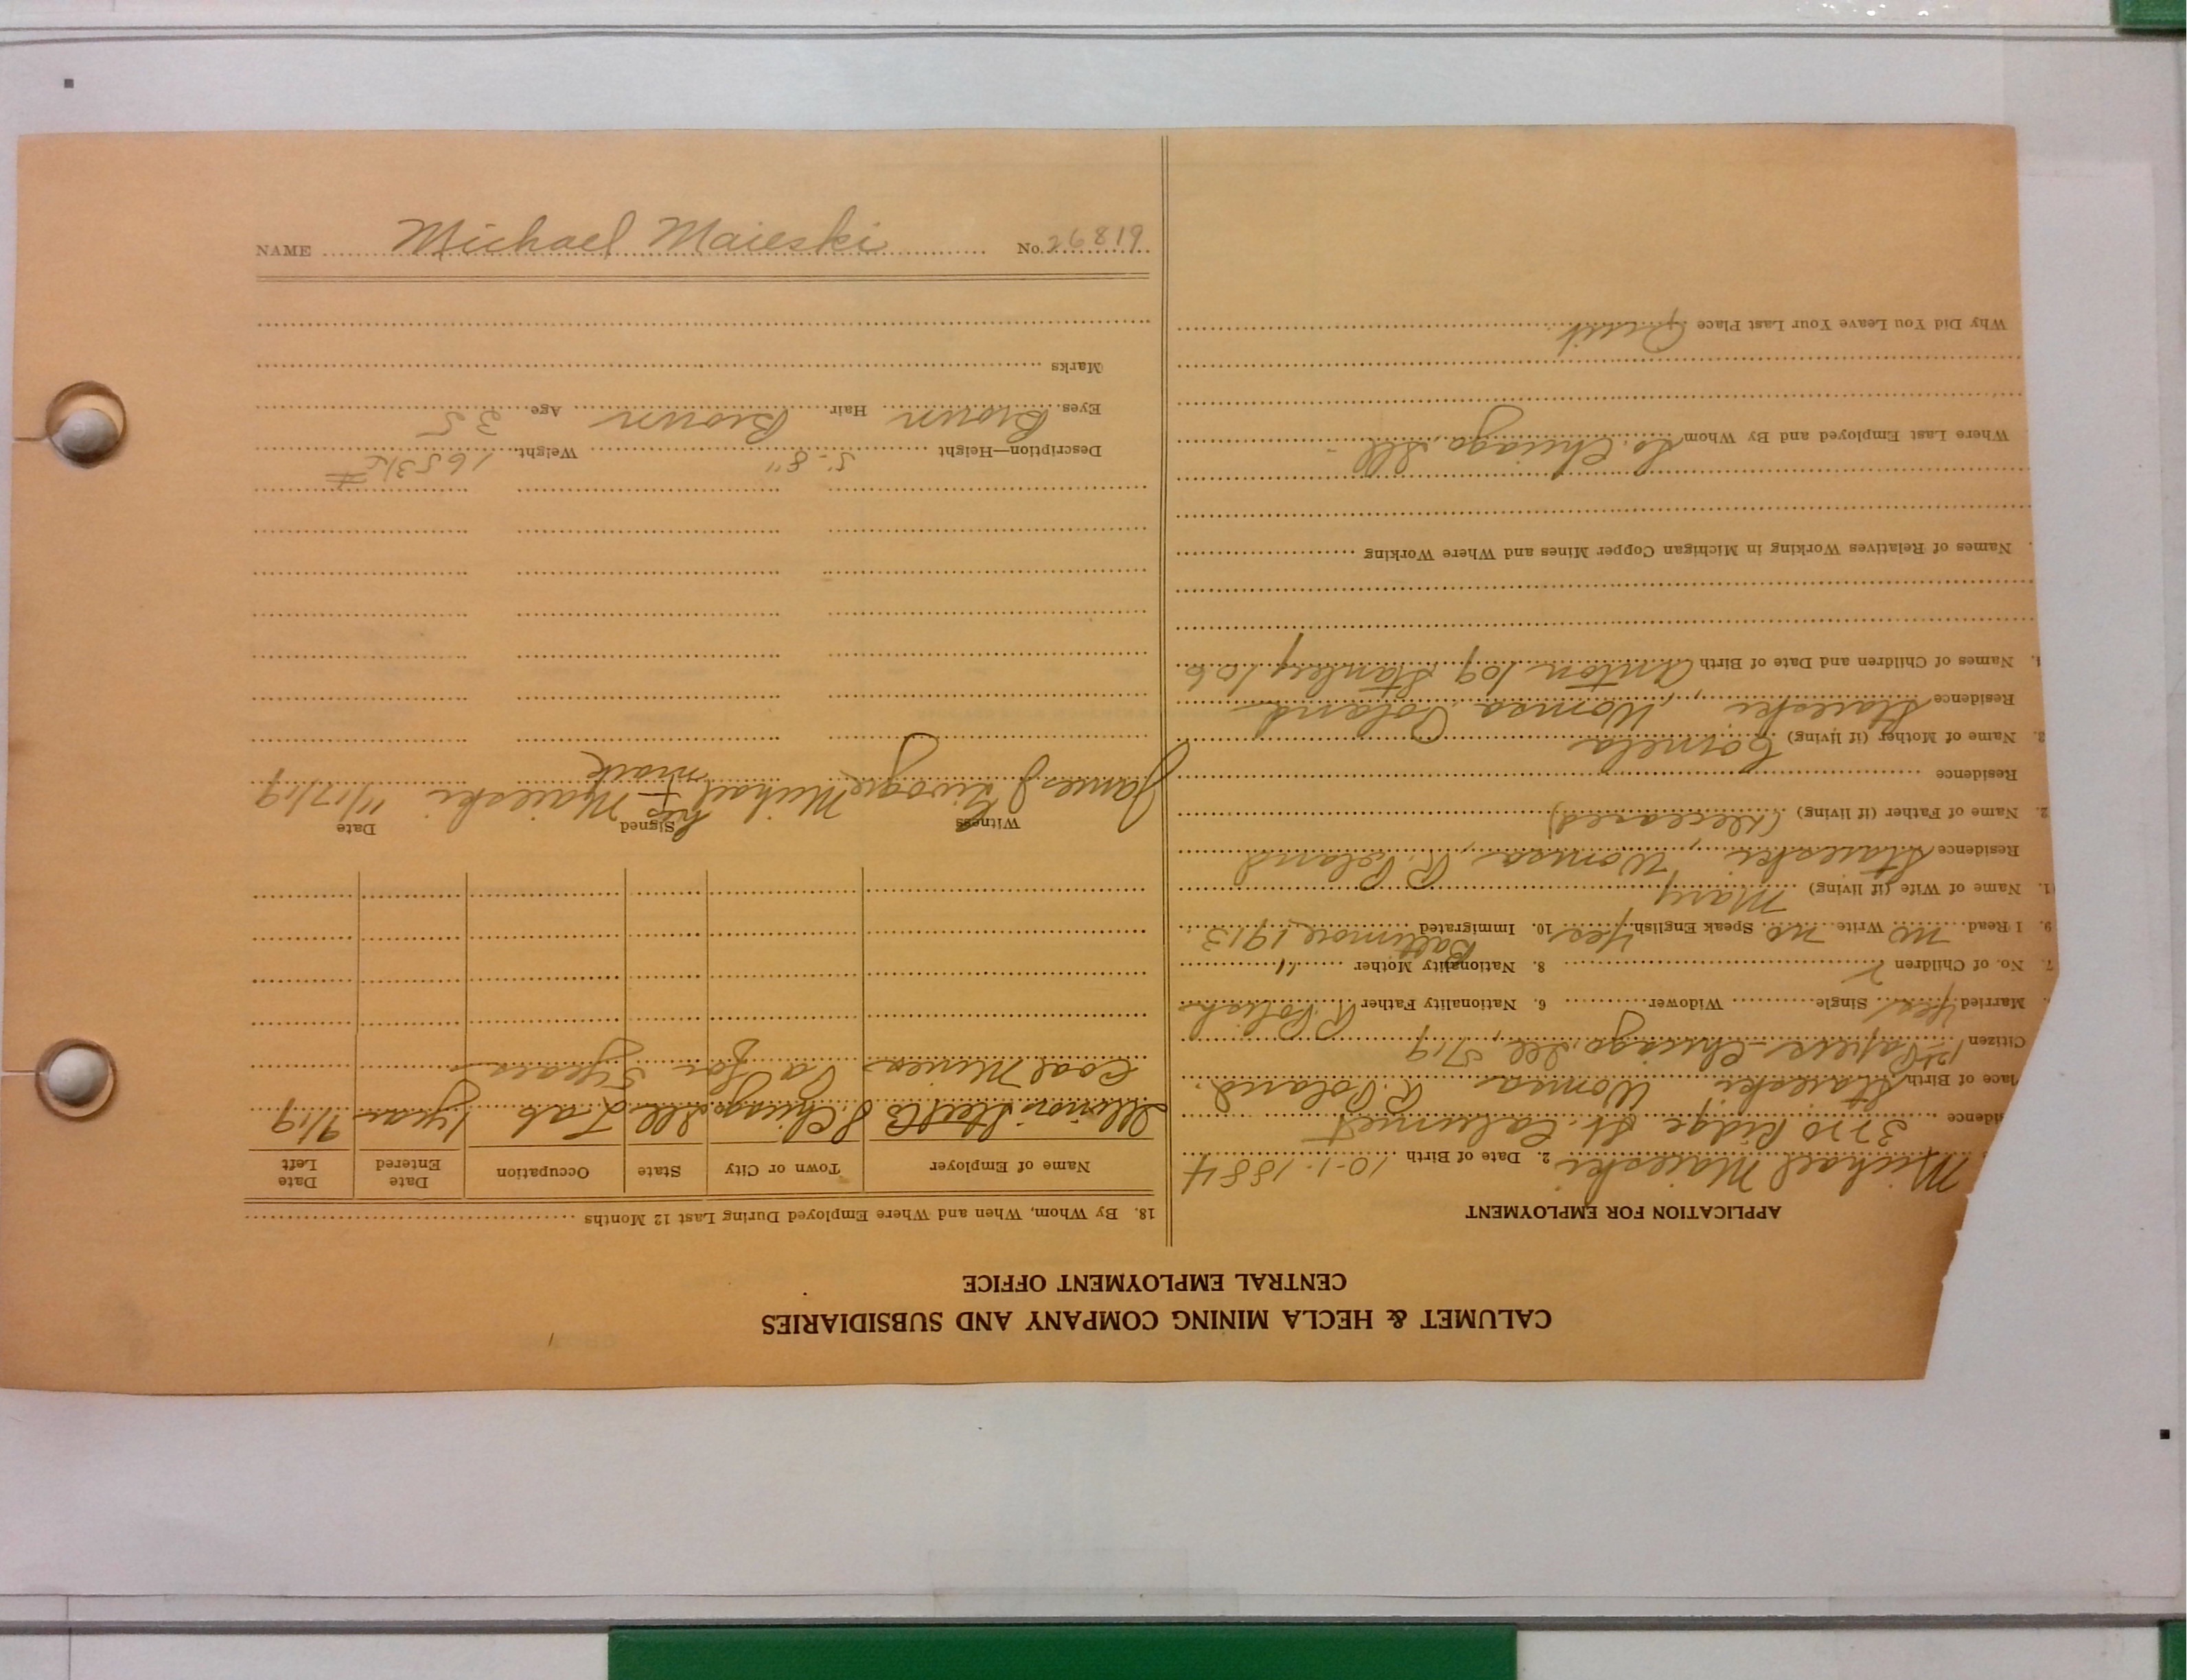 CALUMET & HECLA MINING COMPANY AND SUBSIDIARIES
CENTRAL EMPLOYMENT OFFICE
APPLICATION FOR EMPLOYMENT
Michael Maieski 2. Date of Birth 10-1-1884
idence 3770 Ridge St. Calumet
lace of Birth Staieski Womsa R. Poland.
Citizen 1st Papers - Chicago, Ill 5/19
Married Yes Single Widower 6. Nationality Father R. Polish
7. No. of Children 2 8. Nationality Mother "
9. I Read no Write no Speak English Yes 10. Immigrated Baltimore 1913
1. Name of Wife (if living) Mary
Residence Staieski, Womsa, R. Poland
2. Name of Father (if living) (Deceased)
Residence
3. Name of Mother (if living) Cornela
Residence Staieski, Womsa Poland
4. Names of Children and Date of Birth Anton 109 Stanley 106
Names of Relatives Working in Michigan Copper Mines and Where Working
Where Last Employed and By Whom So. Chicago, Ill -
Why Did You Leave Your Last Place Quit
18. By Whom, When and Where Employed During Last 12 Months
Name of Employer Town or City State Occupation Date Entered Date Left
Illinois Steel Co S. Chicago Ill Lab 1 year 9/19
Coal Mines Pa for 5 years
Witness Signed Date
James J Michael his Maieski 11/17/19
mark
Description—Height 5'-8" Weight 165 3/4 #
Eyes Brown Hair Brown Age 35
Marks
NAME Michael Maieski No. 26819